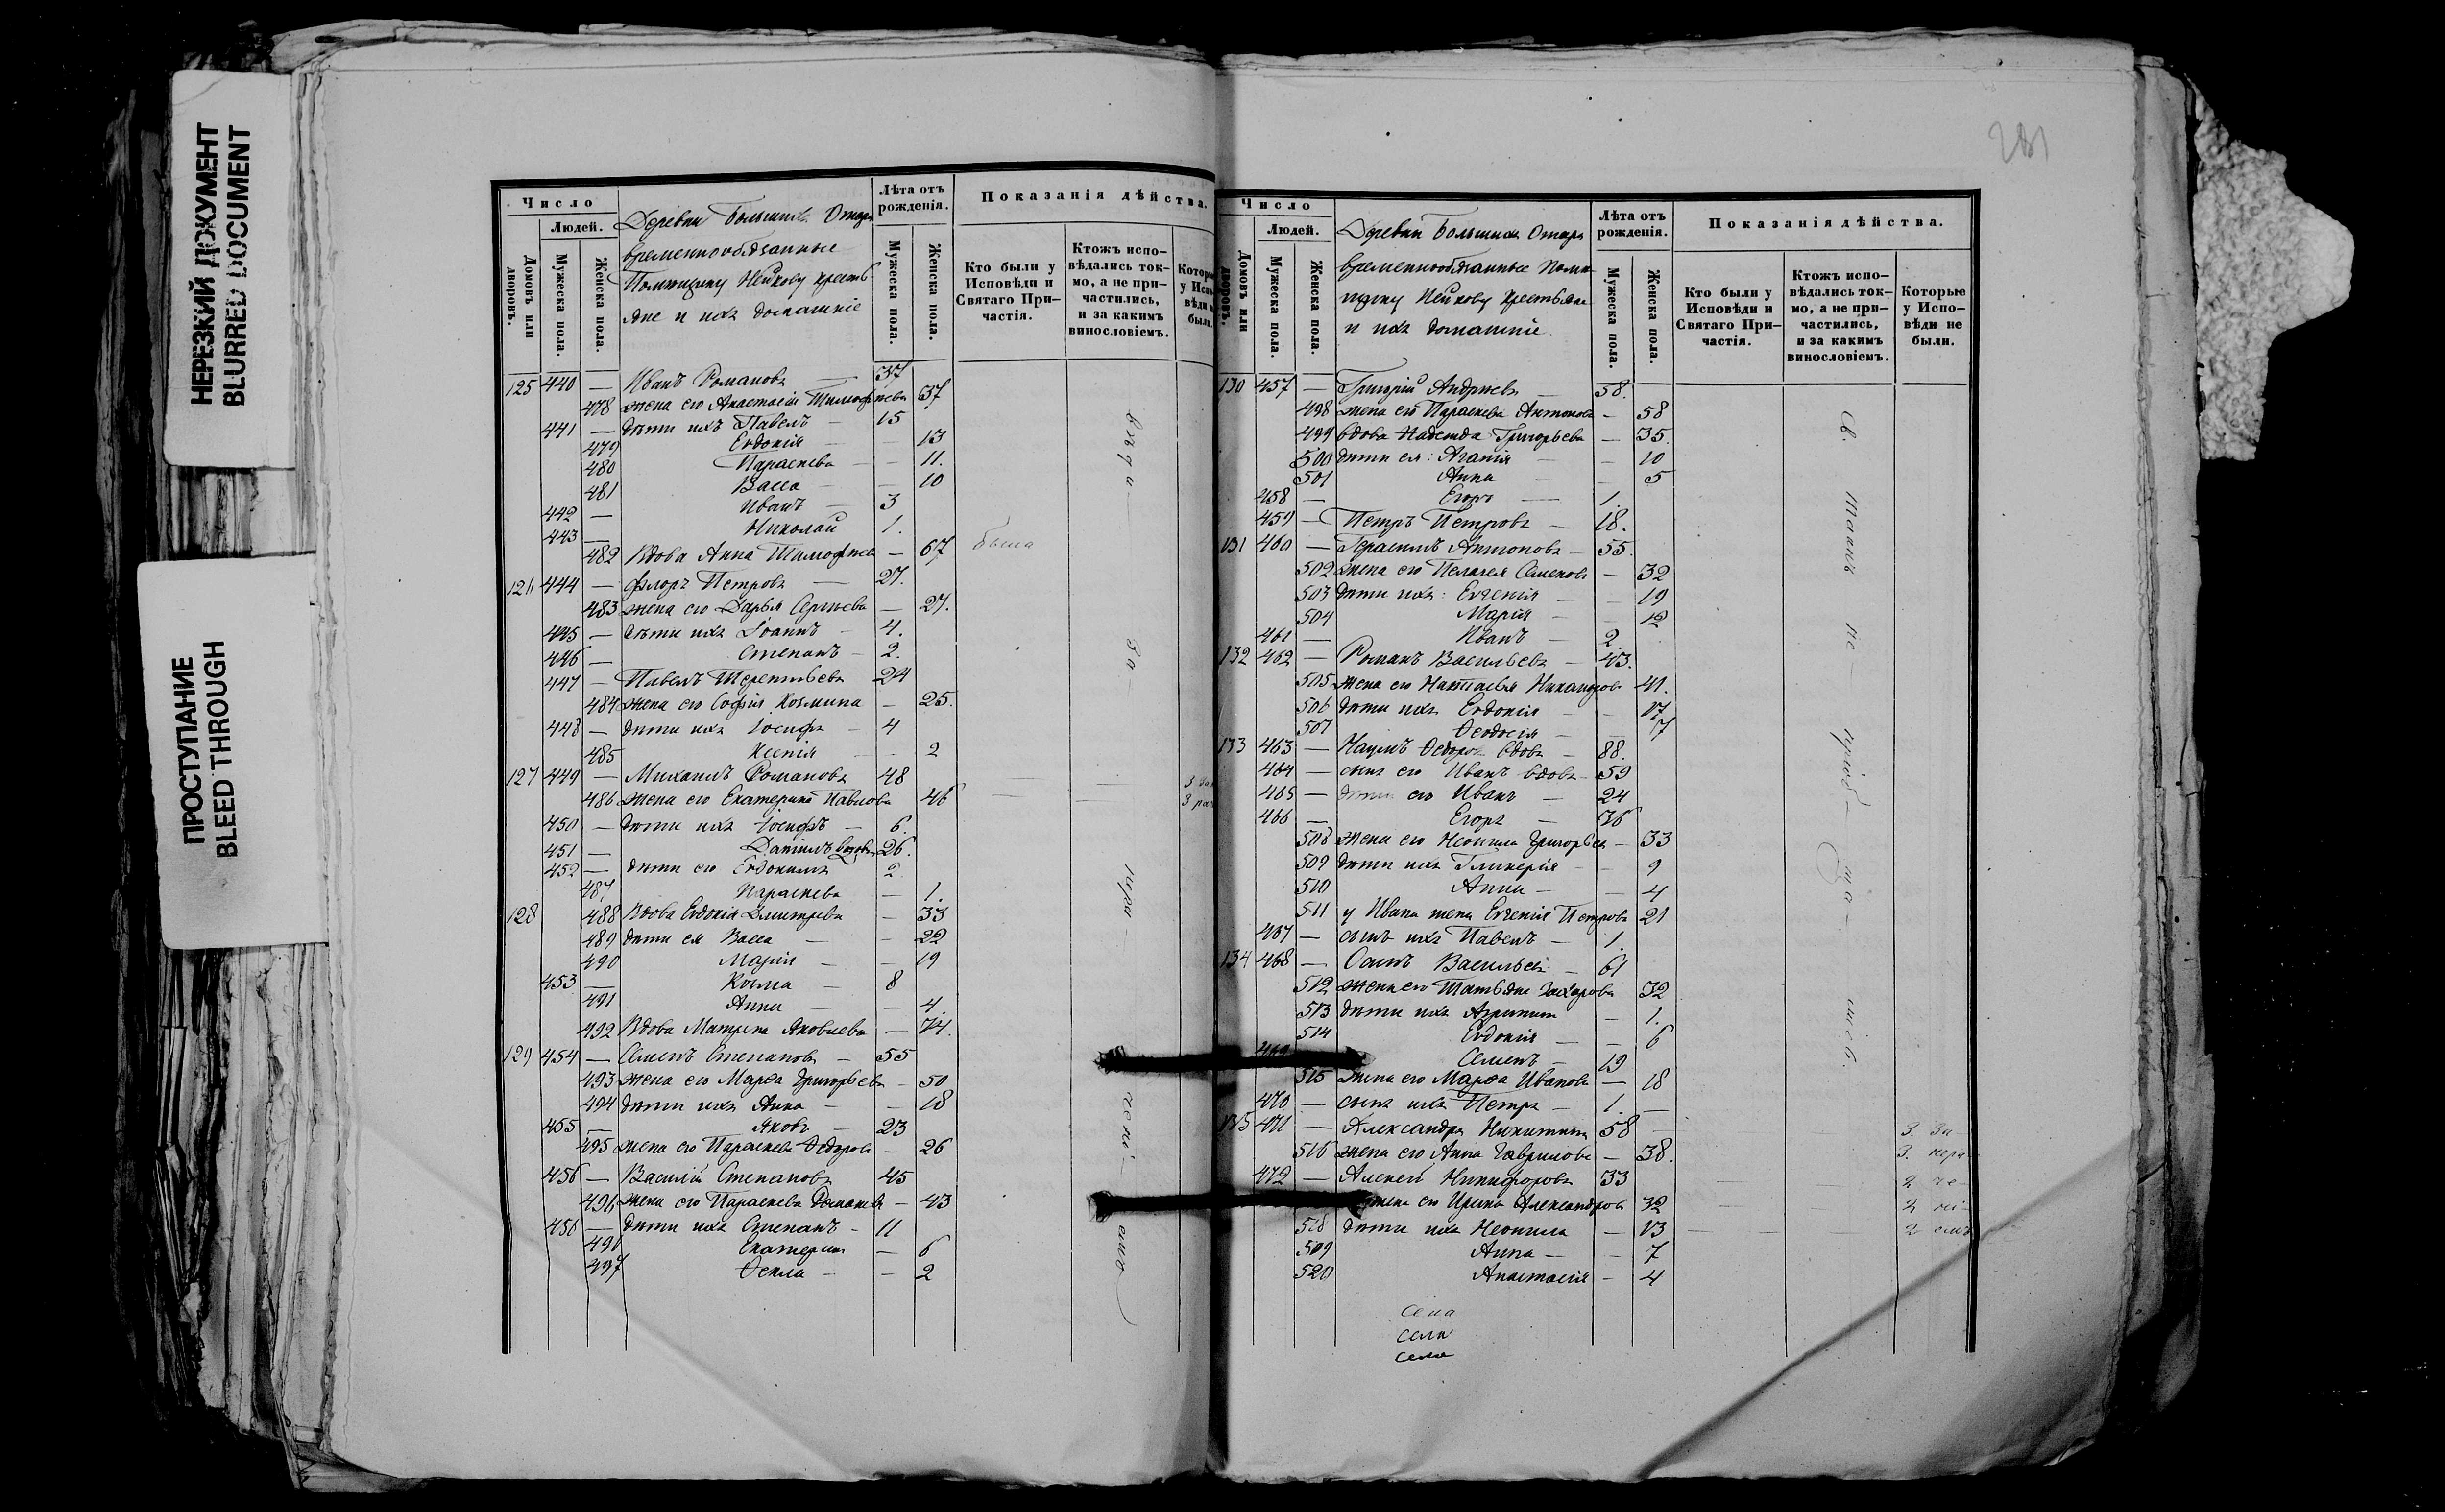 НЕРЕЗКИЙ ДОКУМЕНТ
BLURRED DOCUMENT
ПРОСТУПАНИЕ
BLEED THROUGH
Число
Людей.
Домовъ или дворовъ.
Мужеска пола.
Женска пола.
Деревни Большихъ Отаръ
временнообязанные
Помѣщику Нейкову крестья
яне и ихъ домашніе
Лѣта отъ рожденія.
Мужеска пола.
Женска пола.
Показанія дѣйства.
Кто были у Исповѣди и Святаго Причастія.
Ктожъ исповѣдались токмо, а не причастились, и за какимъ винословіемъ.
125 440 — Иванъ Романовъ — 37
478 жена его Анастасія Тимофѣева 37
441 — дѣти ихъ Павелъ — 15
479 Евдокія — — 13
480 Параскева — — 11.
481 Васса — — 10
442 — Иванъ — 3
443 — Николай 1.
482 Вдова Анна Тимофѣева — 67 была
126 444 — Флоръ Петровъ — 27.
483 жена его Дарья Сергѣева — 27.
445 — дѣти ихъ Іоаннъ — 4.
446 — Степанъ — 2.
447 — Павелъ Терентьевъ 24
484 жена его Софія Козмина — 25.
448 — дѣти ихъ Іосифъ — 4
485 Ксенія — 2
127 449 — Михаилъ Романовъ 48
486 жена его Екатерина Павлова 46
450 — дѣти ихъ Іосифъ — 6.
451 — Даніилъ вдовъ 26.
452 — дѣти его Евдокимъ 2
487 Параскева — 1.
128 488 Вдова Евдокія Дмитрева — 33
489 дѣти ея Васса — — 22
490 Марія — — 19
453 — Козма — 8
491 Анна — — 4.
492 Вдова Матрена Яковлева — 74.
129 454 — Семенъ Степановъ — 55
493 жена его Марѳа Григорьева — 50
494 дѣти ихъ Анна — — 18
455 — Яковъ — 23
495 жена его Параскева Ѳедорова — 26
456 — Василій Степановъ 45
496 жена его Параскева Романова — 43
456 — дѣти ихъ Степанъ — 11
496 Екатерина — 6
497 Ѳекла — — 2
281
Число
Людей.
Домовъ или дворовъ.
Мужеска пола.
Женска пола.
Деревни Большихъ Отаръ
временнообязанные Помѣ
щику Нейкову крестьяне
и ихъ домашніе.
Лѣта отъ рожденія.
Мужеска пола.
Женска пола.
Показанія дѣйства.
Кто были у Исповѣди и Святаго Причастія.
Ктожъ исповѣдались токмо, а не причастились, и за какимъ винословіемъ.
Которые у Исповѣди не были.
130 457 — Григорій Андреевъ — 58.
498 жена его Параскева Антонова — 58
499 вдова Надежда Григорьева — 35.
500 дѣти ея: Агапія — — 10
501 Анна — — 5
458 — Егоръ — 1.
459 — Петръ Петровъ — 18.
131 460 — Герасимъ Антоновъ — 55.
502 жена его Пелагея Семенова — 32
503 дѣти ихъ: Евгенія — — 19
504 Марія — — 12
461 — Иванъ — 2
132 462 — Романъ Васильевъ — 43.
505 жена его Наталья Никандрова 41.
506 дѣти ихъ Евдокія — — 17
507 Ѳеодосія — — 7
133 463 — Наумъ Ѳедоровъ вдовъ — 88.
464 — сынъ его Иванъ вдовъ — 59
465 — дѣти его Иванъ — 24
466 — Егоръ — 36
508 жена его Неонила Григорьева — 33
509 дѣти ихъ Гликерія — — 9
510 Анна — — 4
511 у Ивана жена Евгенія Петрова 21
467 — сынъ ихъ Павелъ — 1.
134 468 — Осипъ Васильевъ — 61
512 жена его Татьяна Захарова 32
513 дѣти ихъ — 1.
514 Евдокія — — 6
Семенъ — 19
515 жена его Марѳа Иванова — 18
470 — сынъ ихъ Петръ — 1. —
135 471 — Александръ Никитинъ 58 —
516 жена его Анна Гаврилова — 38.
472 — Алексей Никифоровъ 33
жена его Ирина Александрова 32
518 дѣти ихъ Неонила — 13
519 Анна — — 7
520 Анастасія — 4
Села
Села
Села